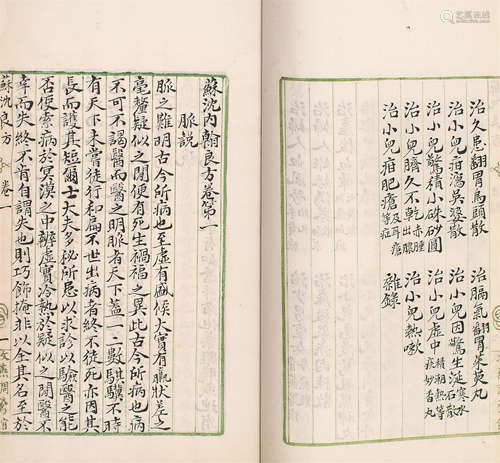 治久患翻胃馬頭散 治膈氣翻胃茱萸丸
治小兒疳瀉吳婆散 治小兒因驚生涎寒水石散
治小兒驚積小硃砂圓 治小兒虛中積潮熱等疾妙香丸
治小兒臍久不乾赤腫出膿 治小兒熱嗽
治小兒疳肥瘡等症及耳瘡 雜錄
蘇沈內翰良方卷第一
脈說
脈之難明古今所病也至虛有盛候大實有羸狀差之
毫釐疑似之間便有死生禍福之異此古今所病也病
不可不謁醫而醫之明脈者天下蓋一二數騏驥不時
有天下未嘗徒行和扁不世出病者終不徒死亦因其
長而護其短爾士大夫多秘所患以求診以驗醫之能
否便索病於冥漠之中辨虛實冷熱於疑似之間醫不
幸而失終不肯自謂失也則巧飾掩非以全其名至於
蘇沈良方 卷一 一